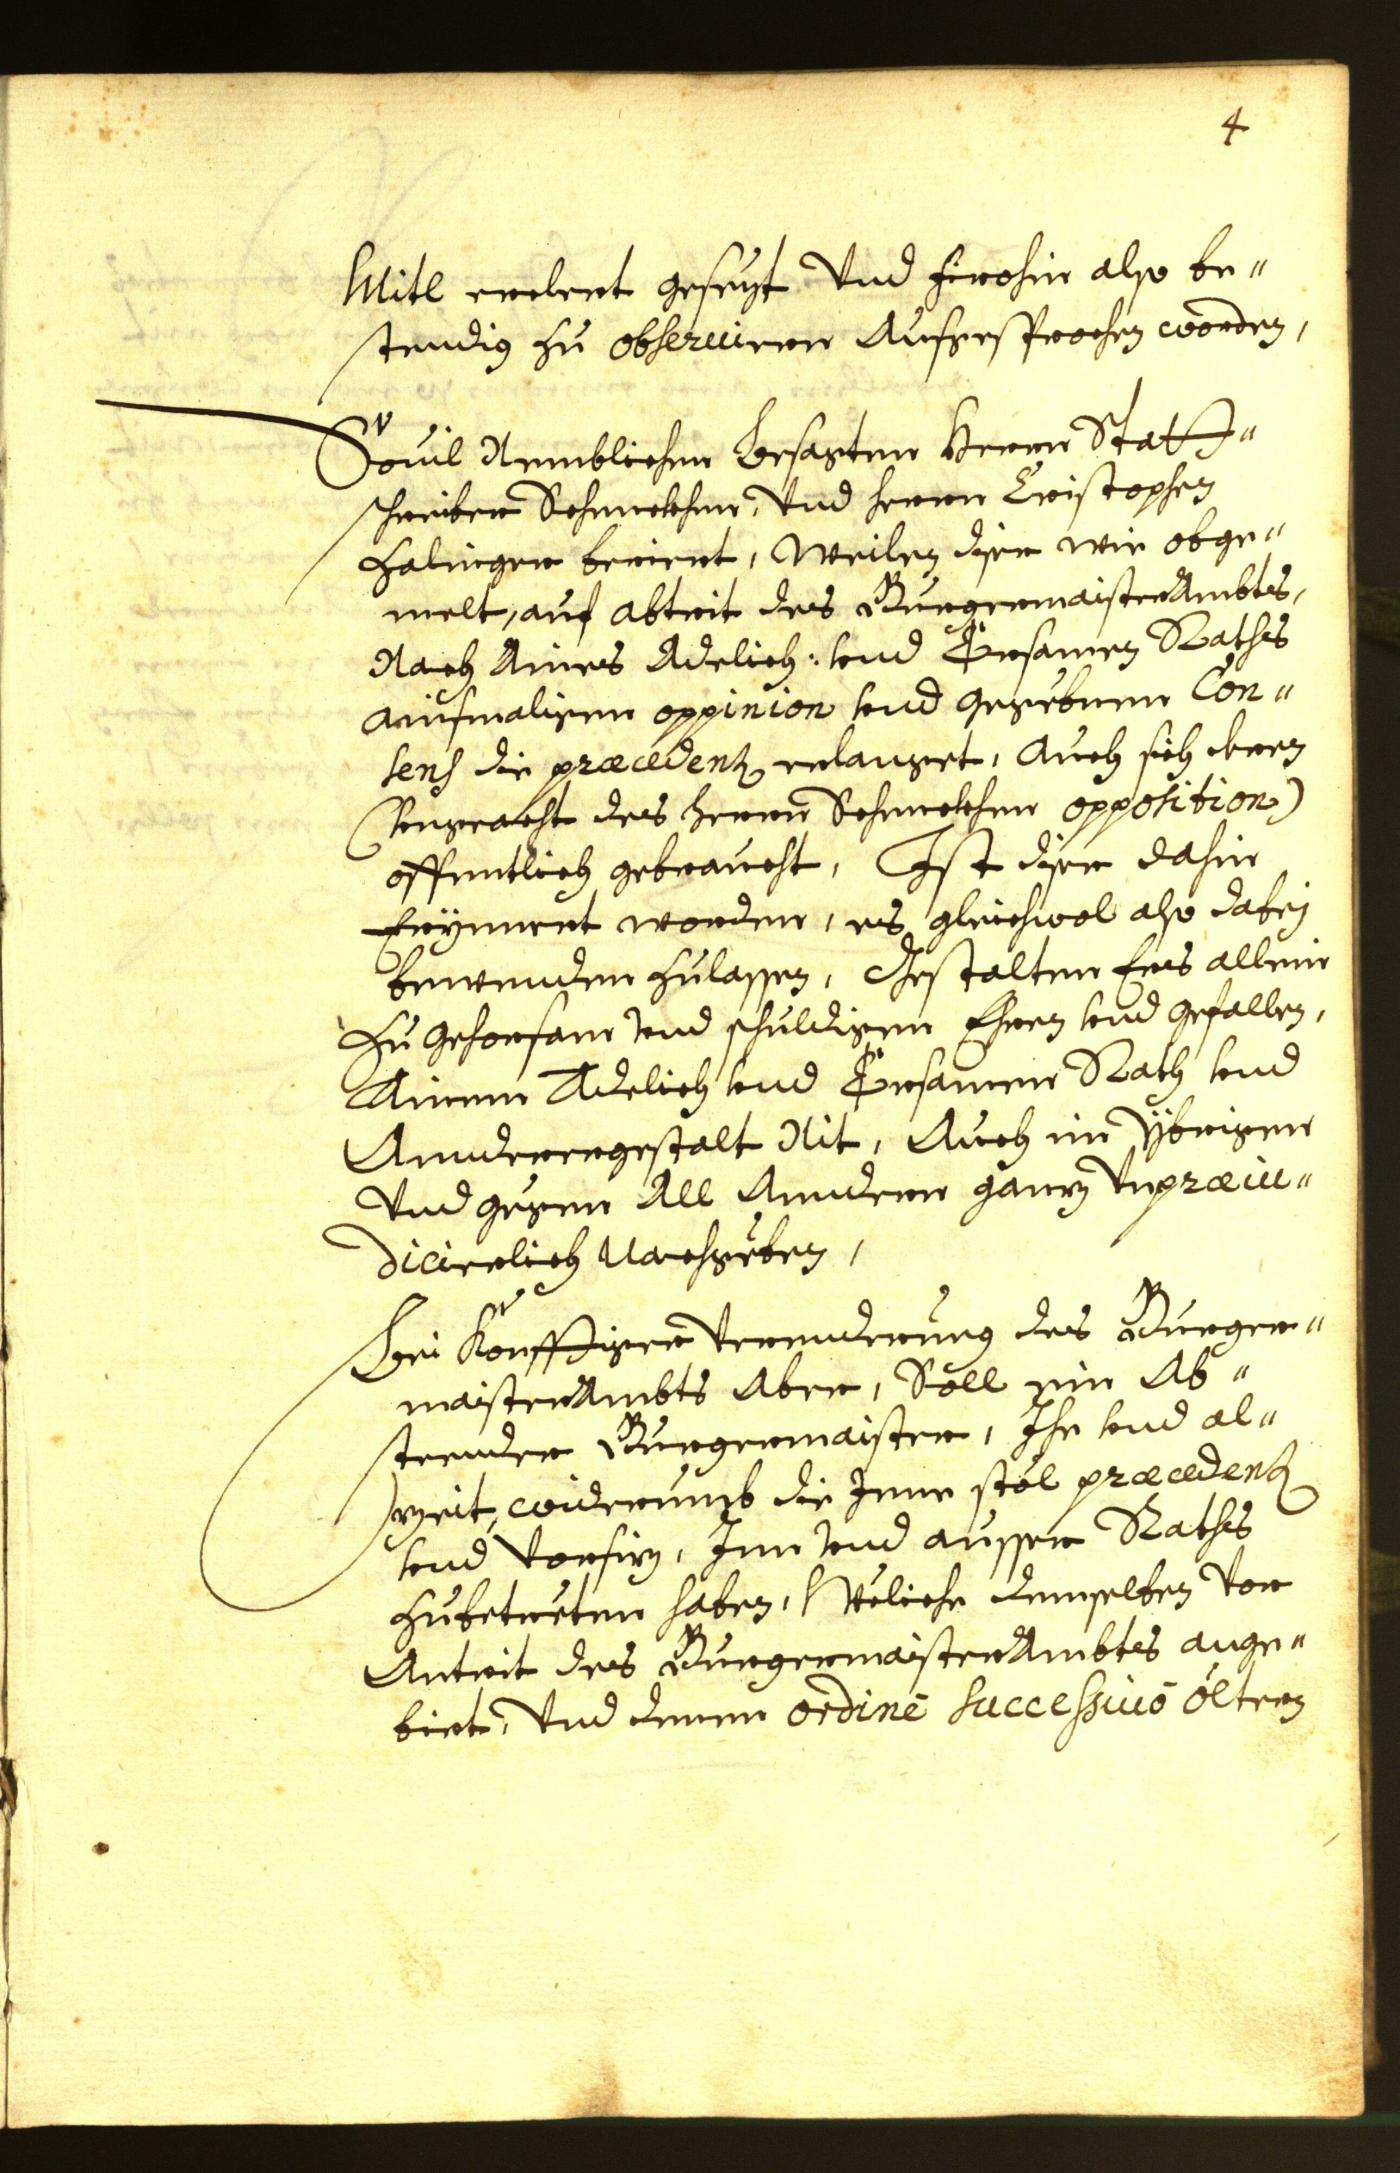 4
Mitl erclert gesezt Vnd hierohin also be"
stendig zu obseruiern Aufgesprochen worden,
Souil Nemblichen Besagten Herrn Statt"
schreiber Schmelcher, Vnd herrn Cristophen
halinger beriert, Weilen diser wie obge"
melt, auf abtrit des BurgermaisterAmbts,
Nach Aines Adelich: vnd Ersamen Raths
ainsmaligen oppinion vnd gegebnen Con"
sens die præcedenz erlanget, Auch sich deren
(vngeacht des herrn Schmelcher opposition)
offentlich gebraucht, Ist diser dahin
Erynnert worden, es gleichwol also dabey
bewenden zulassen, Gestalten Ers allein
zu gehorsam vnd schuldigen Ehren vnd gefallen,
Ainem Adelich vnd Ersamen Rath vnd
Annderergestalt Nit, Auch im Ybrigen
Vnd gegen All Anndern ganz Vnpræiu"
dicierlich Nachgeben,
Bei Konfftiger Verenderung des Burger"
maisterAmbts Aber, Soll ein Ab"
steender Burgermaister, Ihe vnd al"
zeit, widerumb die Jene stöl præcedenz
vnd Vorsiz, Inn Vnd ausser Raths
zubetreten haben, Weliche demselben Vor
Antrit des BurgermaisterAmbts ange"
birt, Vnd denen ordine successiuo öltern